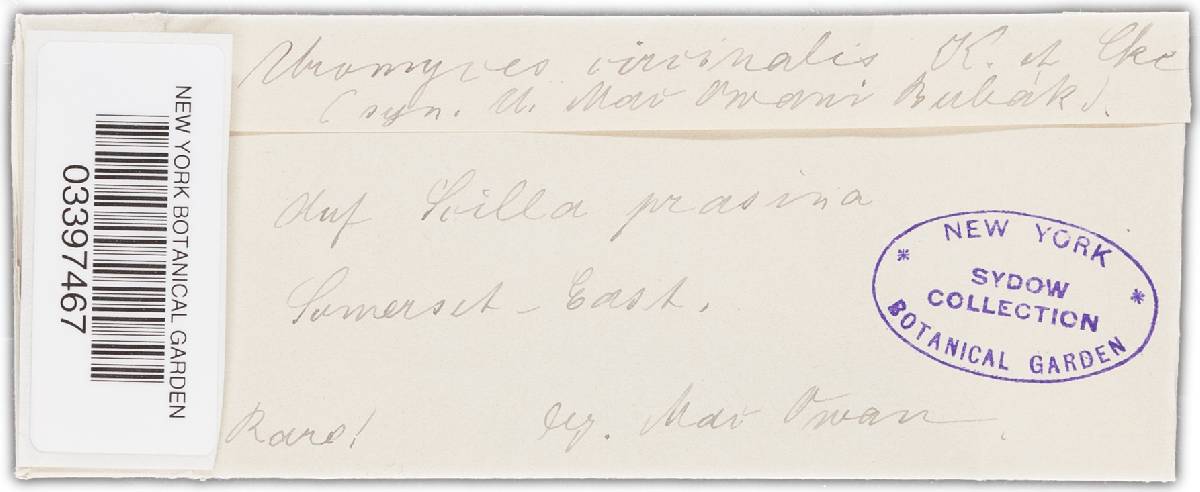 Uromyces circinalis K. et Cke
(syn. U. Mac Owani Bubák).
Auf Scilla prasina
Somerset-East.
Rare! leg. Mac Owan.
NEW YORK
* SYDOW *
COLLECTION
BOTANICAL GARDEN
NEW YORK BOTANICAL GARDEN
03397467